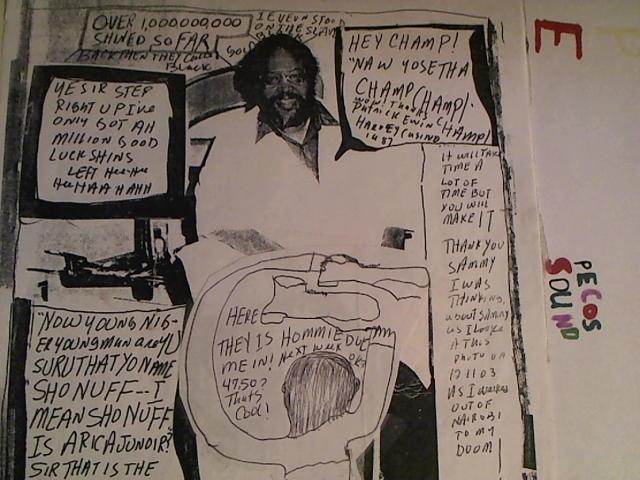 OVER 1,000,000,000
SHINED SO FAR
BACK THEN THEY CALLED
BLACK
I EVEN STOOD
ON THE SLAVE
HEY CHAMP!
"NAW YOSETHA
CHAMP CHAMP!
CHAMP!
PATRICK EWIN
HARVEY CUSINO
1987
YESIR STEP
RIGHT UP IVE
ONLY GOT AH
MILLION GOOD
LUCK SHINS
LEFT HEE HEE
HEE HAA HAHH
IT WILL TAKE
TIME A
LOT OF
TIME BUT
YOU WILL
MAKE IT
THANK YOU
SAMMY
I WAS
THINKING
ABOUT SAMMY
AS I LOOKE
A THIS
PHOTO ON
12 11 03
AS I WALKED
OUT OF
NAIROBI
TO MY
DOOM!
HERE
THEY IS HOMMIE DUE
ME IN! NEXT WEEK OK?
47.50?
THATS
COOL!
"NOW YOUNG NIG-
ER YOUNG MAN AREYU
SURU THAT YO NAME
SHO NUFF--I
MEAN SHO NUFF
IS ARICAJUNDIR?
SIR THAT IS THE
E
PECOS
SOUND